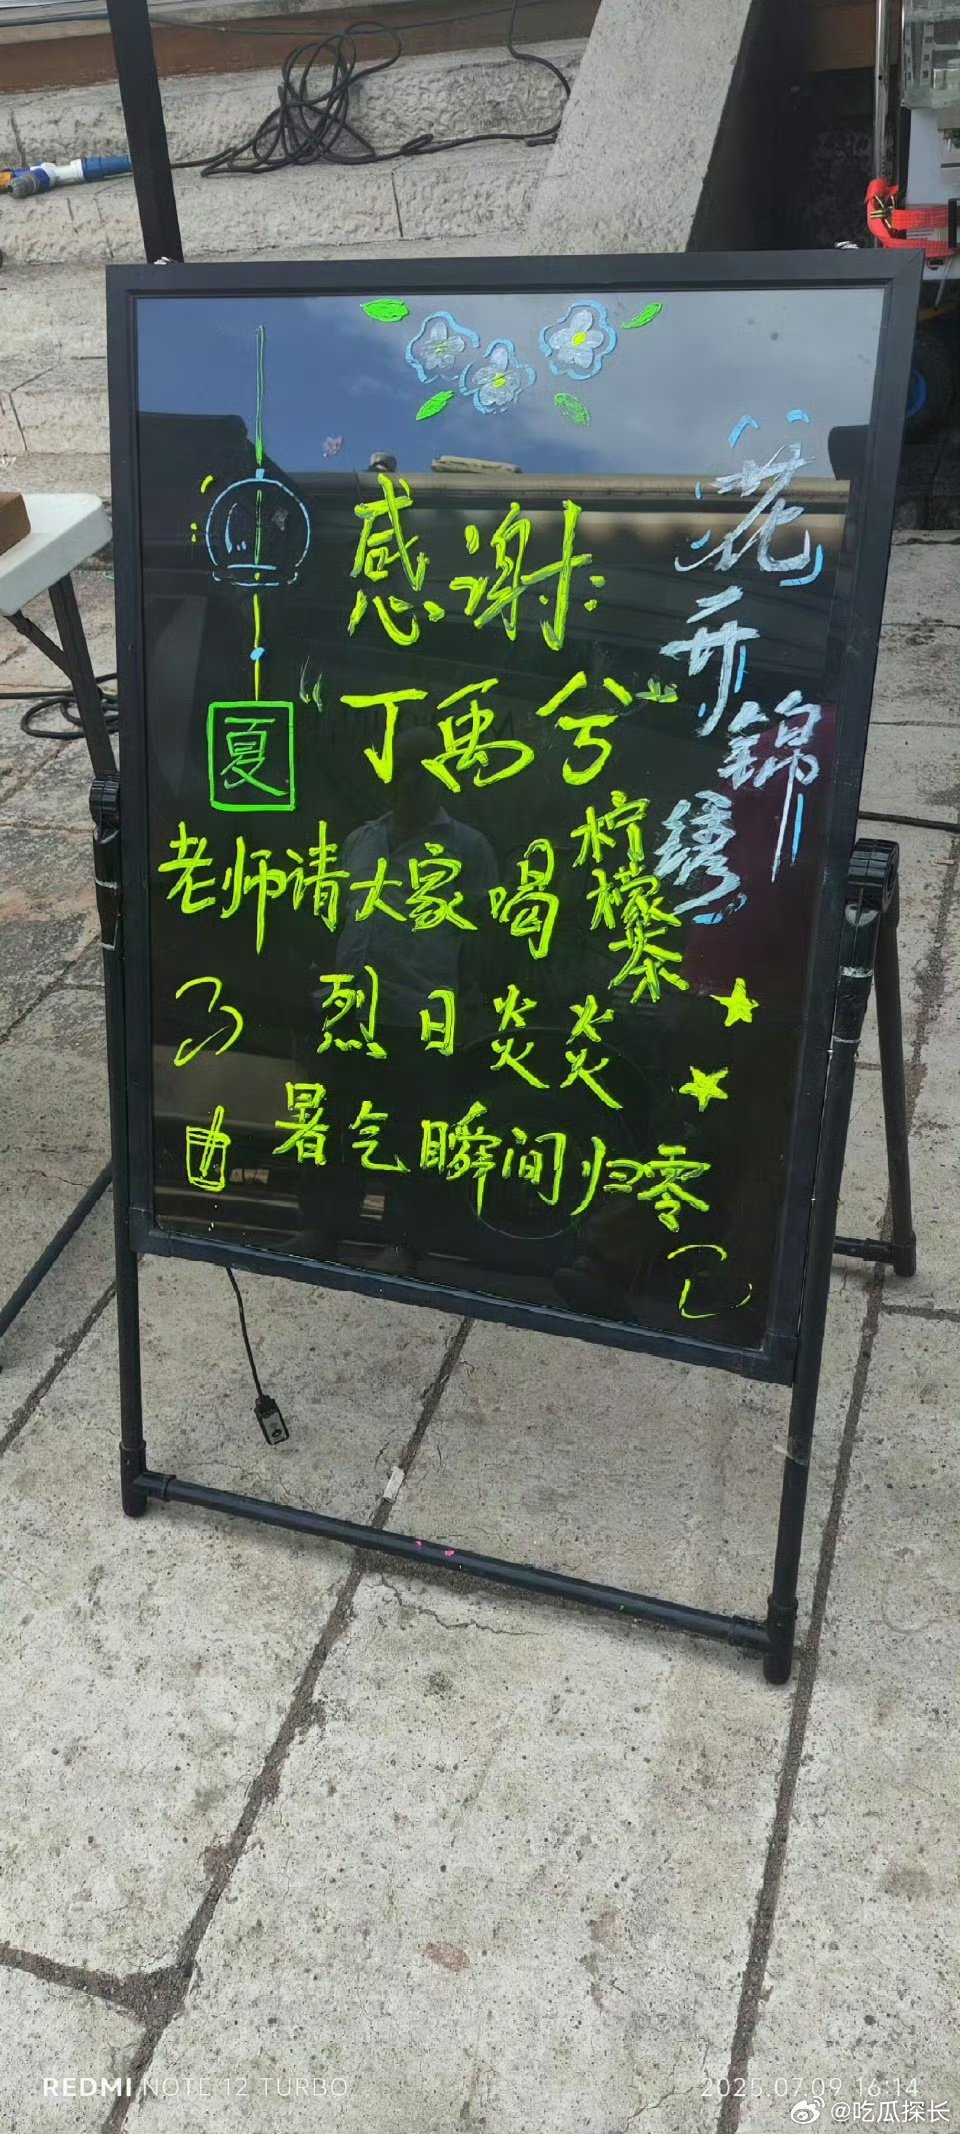 花开锦绣
感谢:
"丁禹兮"
夏
老师请大家喝柠檬茶
烈日炎炎
暑气瞬间归零
REDMI NOTE 12 TURBO
2025.07.09 16:14
@吃瓜探长